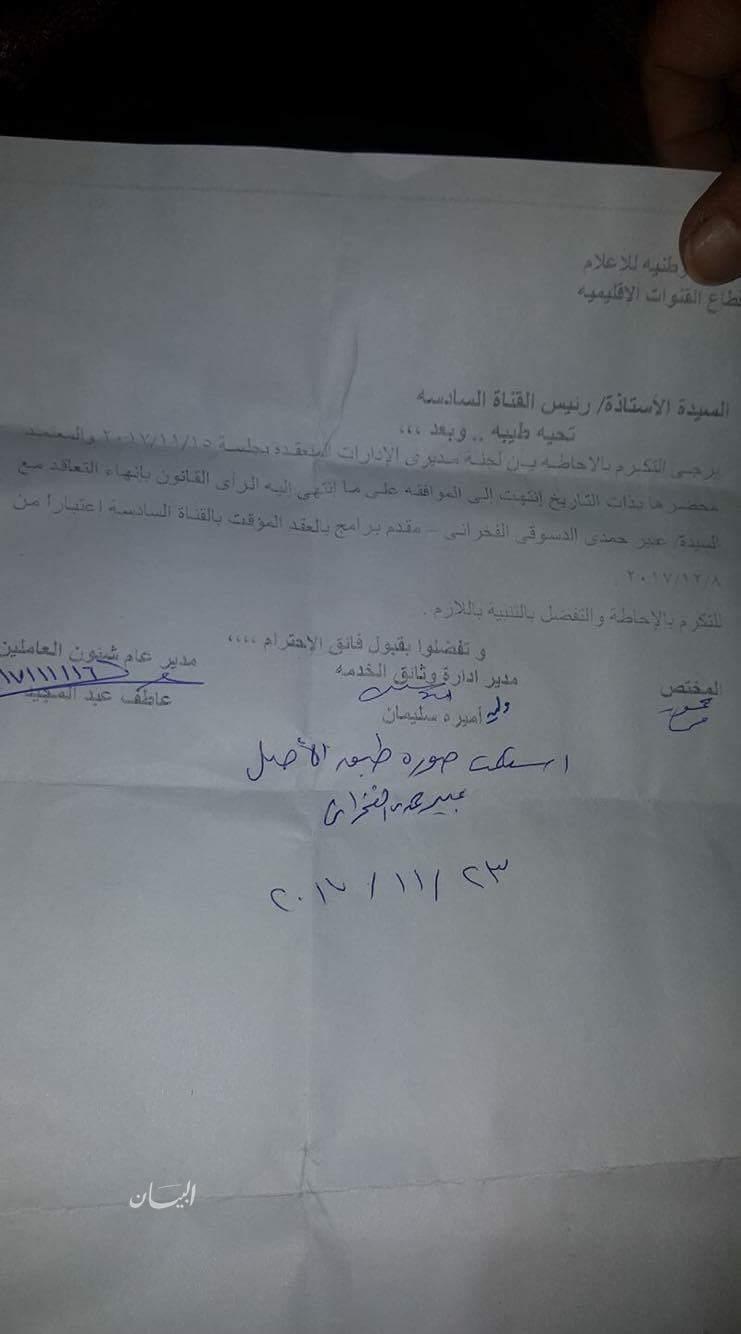 وطنيه للاعلام
قطاع القنوات الاقليميه
السيدة الأستاذة/ رئيس القناة السادسه
تحيه طيبه .. وبعد ،،،
يرجى التكرم بالاحاطه بـن لجنة مديرى الإدارات المنعقدة بجلسة ٢٠١٧/١١/١٥ والمعتمد
محضرها بذات التاريخ إنتهت إلى الموافقه على ما إنتهى إليه الرأى القانون بانهاء التعاقد مع
السيدة/ عبير حمدى الدسوقى الفخرانى – مقدم برامج بالعقد المؤقت بالقناة السادسة اعتباراً من
٢٠١٧/١٢/٨ .
للتكرم بالإحاطة والتفضل بالتنبية باللازم .
و تفضلوا بقبول فائق الإحترام ،،،،
المختص
مدير ادارة وثائق الخدمه
مدير عام شئون العاملين
أميره سليمان
عاطف عبد المجيد
استلمت صوره طبق الأصل
عبير حمدى الفخرانى
٢٠١٧/١١/٢٣
البيان